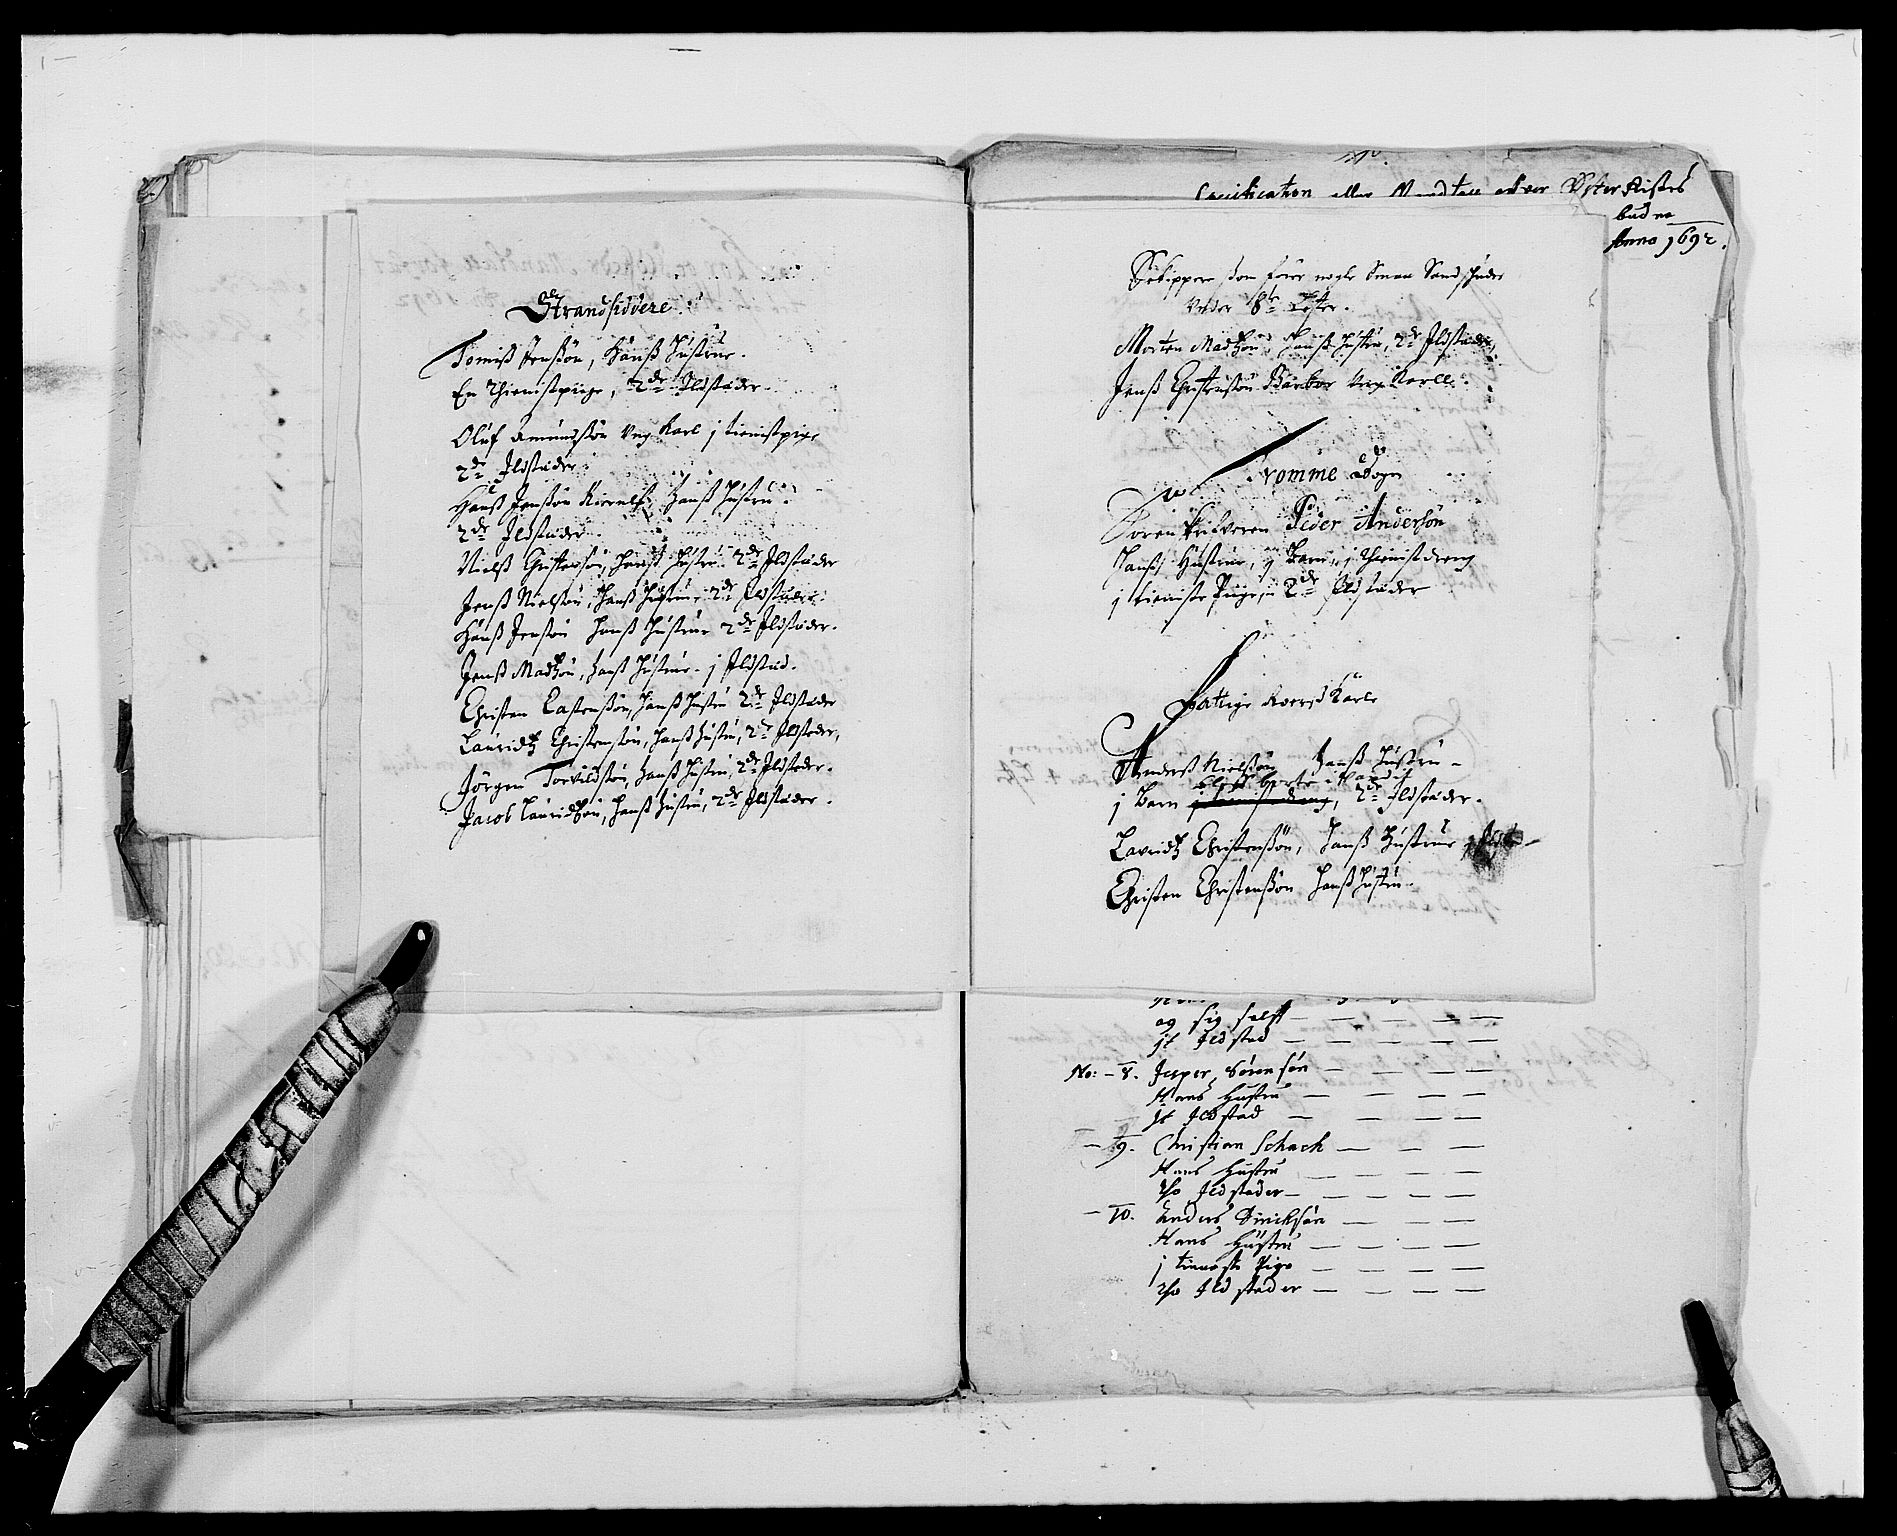 Strandsiddere.
Tomiß Jenßøn, hanß hustrue.
En Thienistpiige, 2de Ildstæder.
Oluf Amundßøn Ung Karl j tienistpige
2de Ildstæder.
Hanß Jenßøn hanß hustru.
2de Ildstæder.
Nielß Christensøn, hanß hustru 2de Ildstæder
Jenß Nielsøn, hanß hustru, 2de Ildstæder.
Hanß Jensøn hanß hustrue 2de Ildstæder.
Jenß Madtzøn, hanß hustrue. j Ildstæd.
Christen Castenßøn, hanß hustru 2de Ildstæder
Lauridtz Christensøn, hanß hustru, 2de Ildstæder,
Jørgen Torvildsøn, hanß hustru, 2de Ildstæder.
Jacob Lauridtzøn, hanß hustru, 2de Ildstæder.
eller Mandtall ofver Øster Riisøes
Anno 1692.
Skipper som fører nogle smaa Sandskuder
under 8te Lester.
Morten Madtzøn, hanß hustru, 2de Ildstæder,
Jenß Christensøn Ung Karll.
Tromme Sogn
Sorenskriveren Peder Andersøn
hanß Hustrue, Børn, j thienistdreng
j tieniste Piige, 2de Ildstæder
Fattige Karle
Anderß Nielsøn hanß hustru
j Barn 2de Ildstæder.
Lavridtz Christenßøn, hanß hustrue
Christen Christenßøn hanß hustru
og sig self
jt Ildsted
No: 8. Jesper Sørensøn
Hans Hustru
jt Ildsted
9. Christian Schach
Hans Hustru
2to Ildsteder
10. Anders Dirichsøn
Hans Hustru
j tieneste Pige
2to Ildsteder